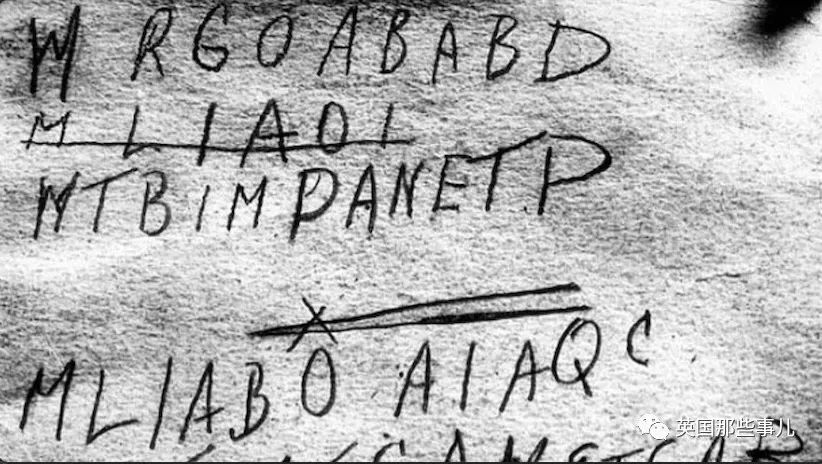 W RGOABABD
MLIAOI
WTBIMPANETP
MLIABO AIAQC
英国那些事儿